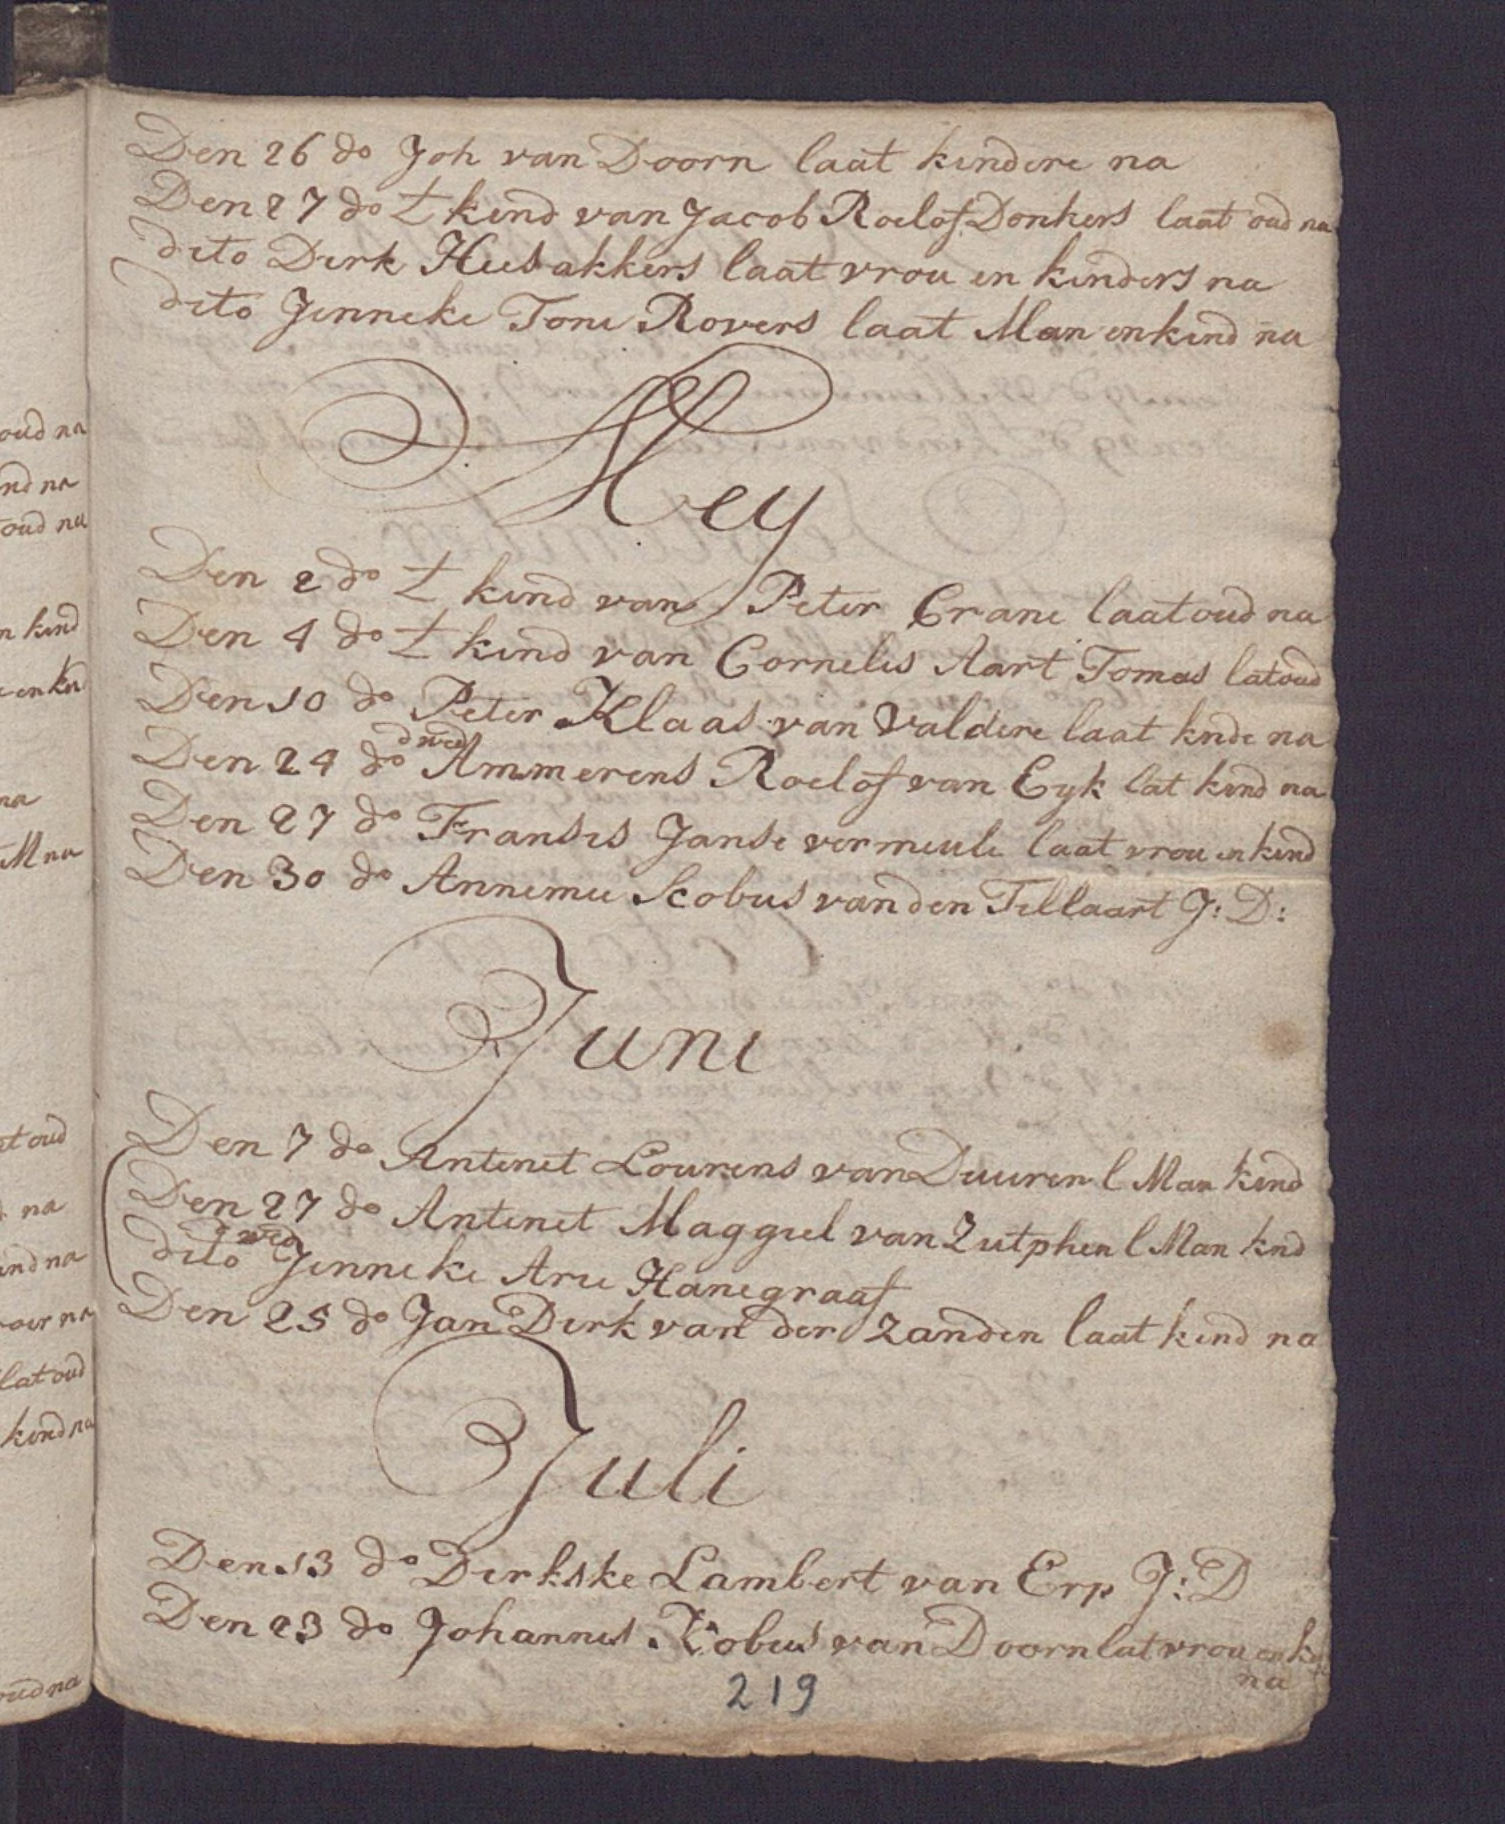 Den 26 do Joh van Doorn laat kindere na
Den 27 do t kind van Jacob Roelof Donkers laat oud na
dito Dirk Huisakkers laat vrou en kinders na
dito Jenneke Toni Rovers laat Man en kind na
Mey
Den 2 do t kind van Peter Crane laat oud na
Den 4 do t kind van Cornelis Aart Tomas lat oud
Den 10 do Peter Klaas van Valdere laat knde na
Den 24 do d wed Ammerens Roelof van Eyk lat kind na
Den 27 do Fransis Janse vermeule laat vrou en kind
Den 30 do Annemie Scobus van den Tillaart J: D:
Juni
Den 7 do Antenet Lourens van Duuren l Man kind
Den 27 do Antenet Maggiel van Zutphen l Man knd
dito d wed Jenneke Arie Hanegraaf
Den 25 do Jan Dirk van der Zanden laat kind na
Juli
Den 13 do Dirkske Lambert van Erp J: D
Den 23 do Johannes Kobus van Doorn lat vrou en
na
219
oud na
nd na
oud na
n kind
en kn
na
M na
t oud
na
ind na
oer na
lat oud
kind na
oud na